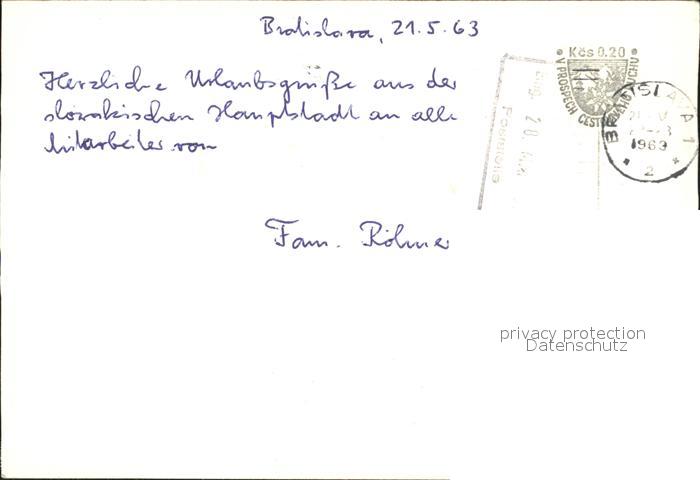 Bratislava, 21.5.63
Herzliche Urlaubsgrüße aus der
slowakischen Hauptstadt an alle
Mitarbeiter von
Fam. Röhmer
Kčs 0.20
V PROSPĚCH CESTOVNÍHO RUCHU
BRATISLAVA 1
1963
2
Eing. 28.
Poststelle
privacy protection
Datenschutz